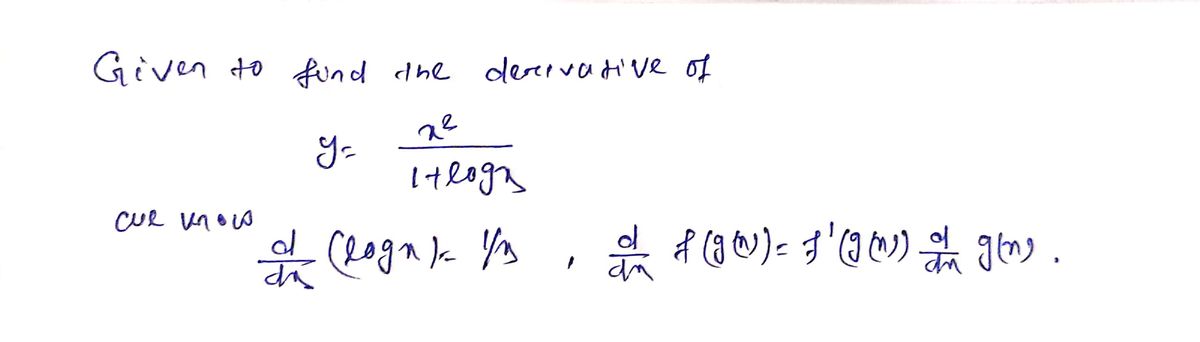 Given to find the derivative of
y = x² / 1+logx
we know d/dx (logx) = 1/x , d/dx f(g(x)) = f'(g(x)) d/dx g(x).